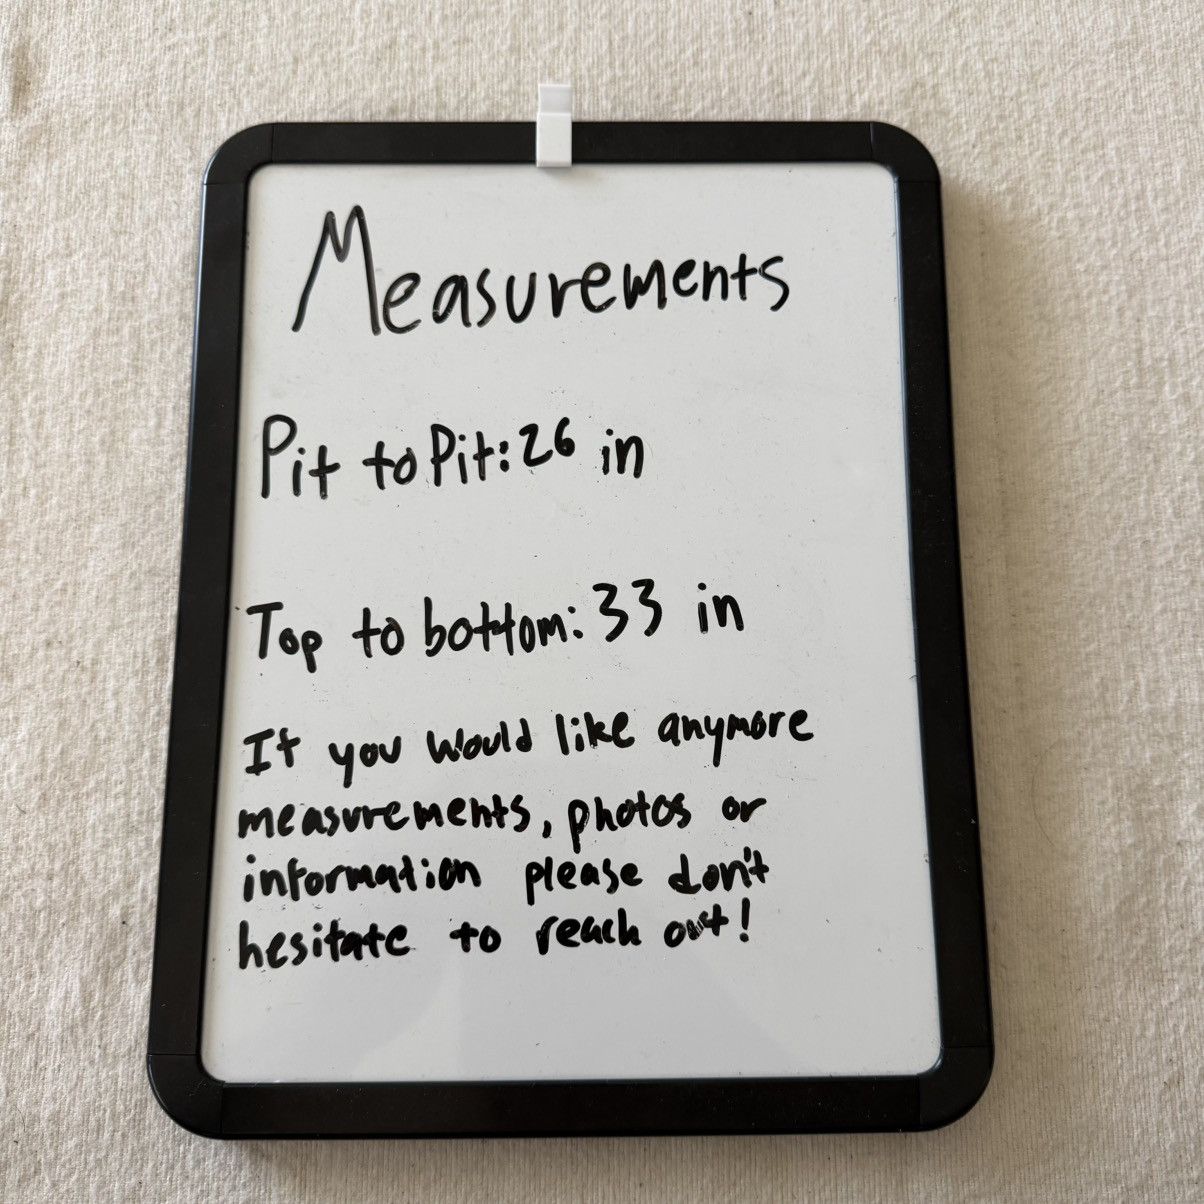 Measurements
Pit to Pit: 26 in
Top to bottom: 33 in
If you would like anymore
measurements, photos or
information please don't
hesitate to reach out!